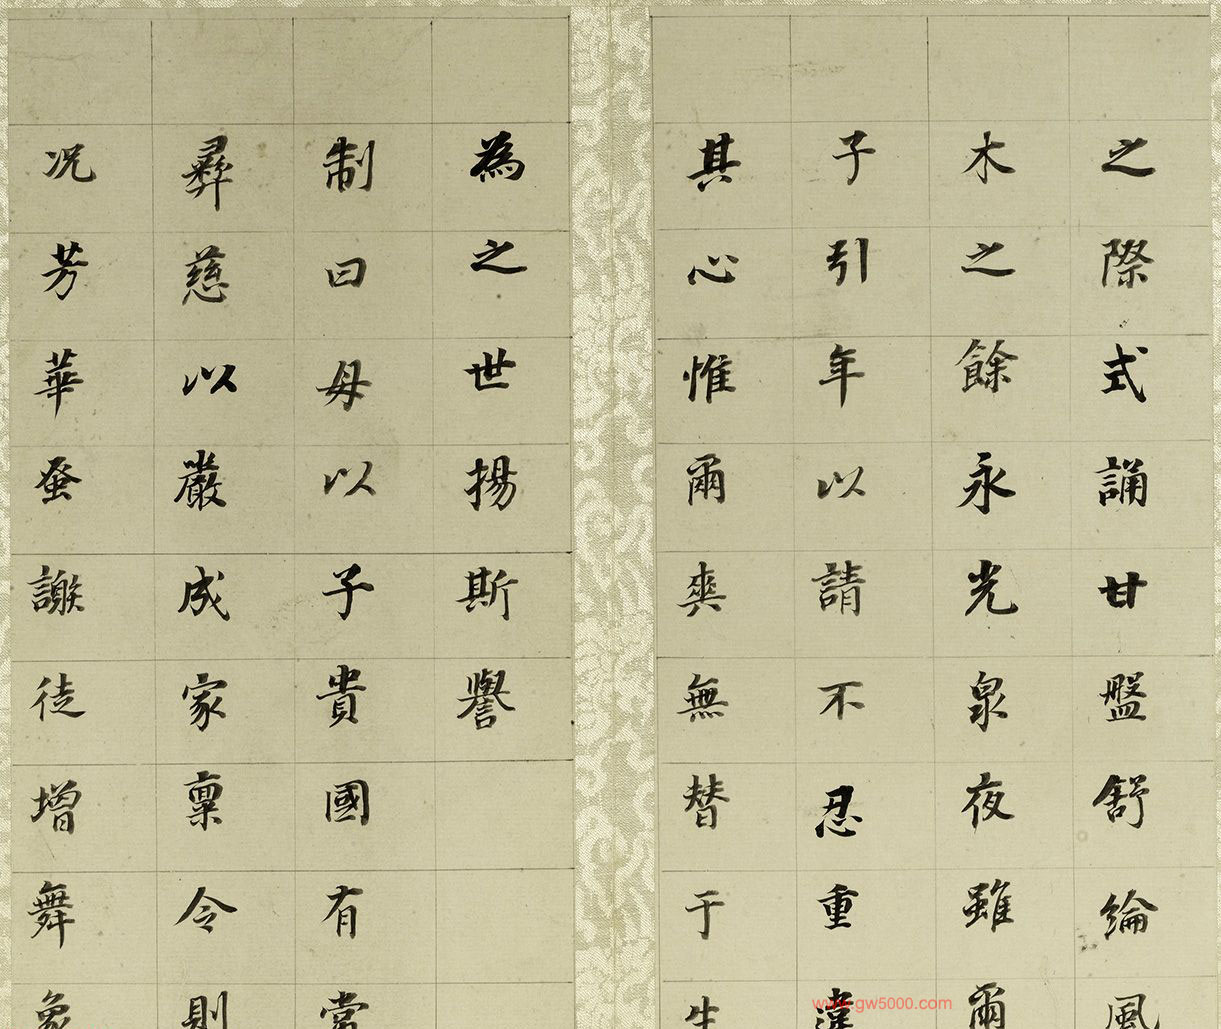 之際式誦甘盤舒綸風
木之餘永光泉夜雖爾
子引年以請不忍重違
其心惟爾爽無替于生
為之世揚斯譽
制曰母以子貴國有常
彝慈以嚴成家稟令則
况芳華蚤謝徒增舞象
www.gw5000.com